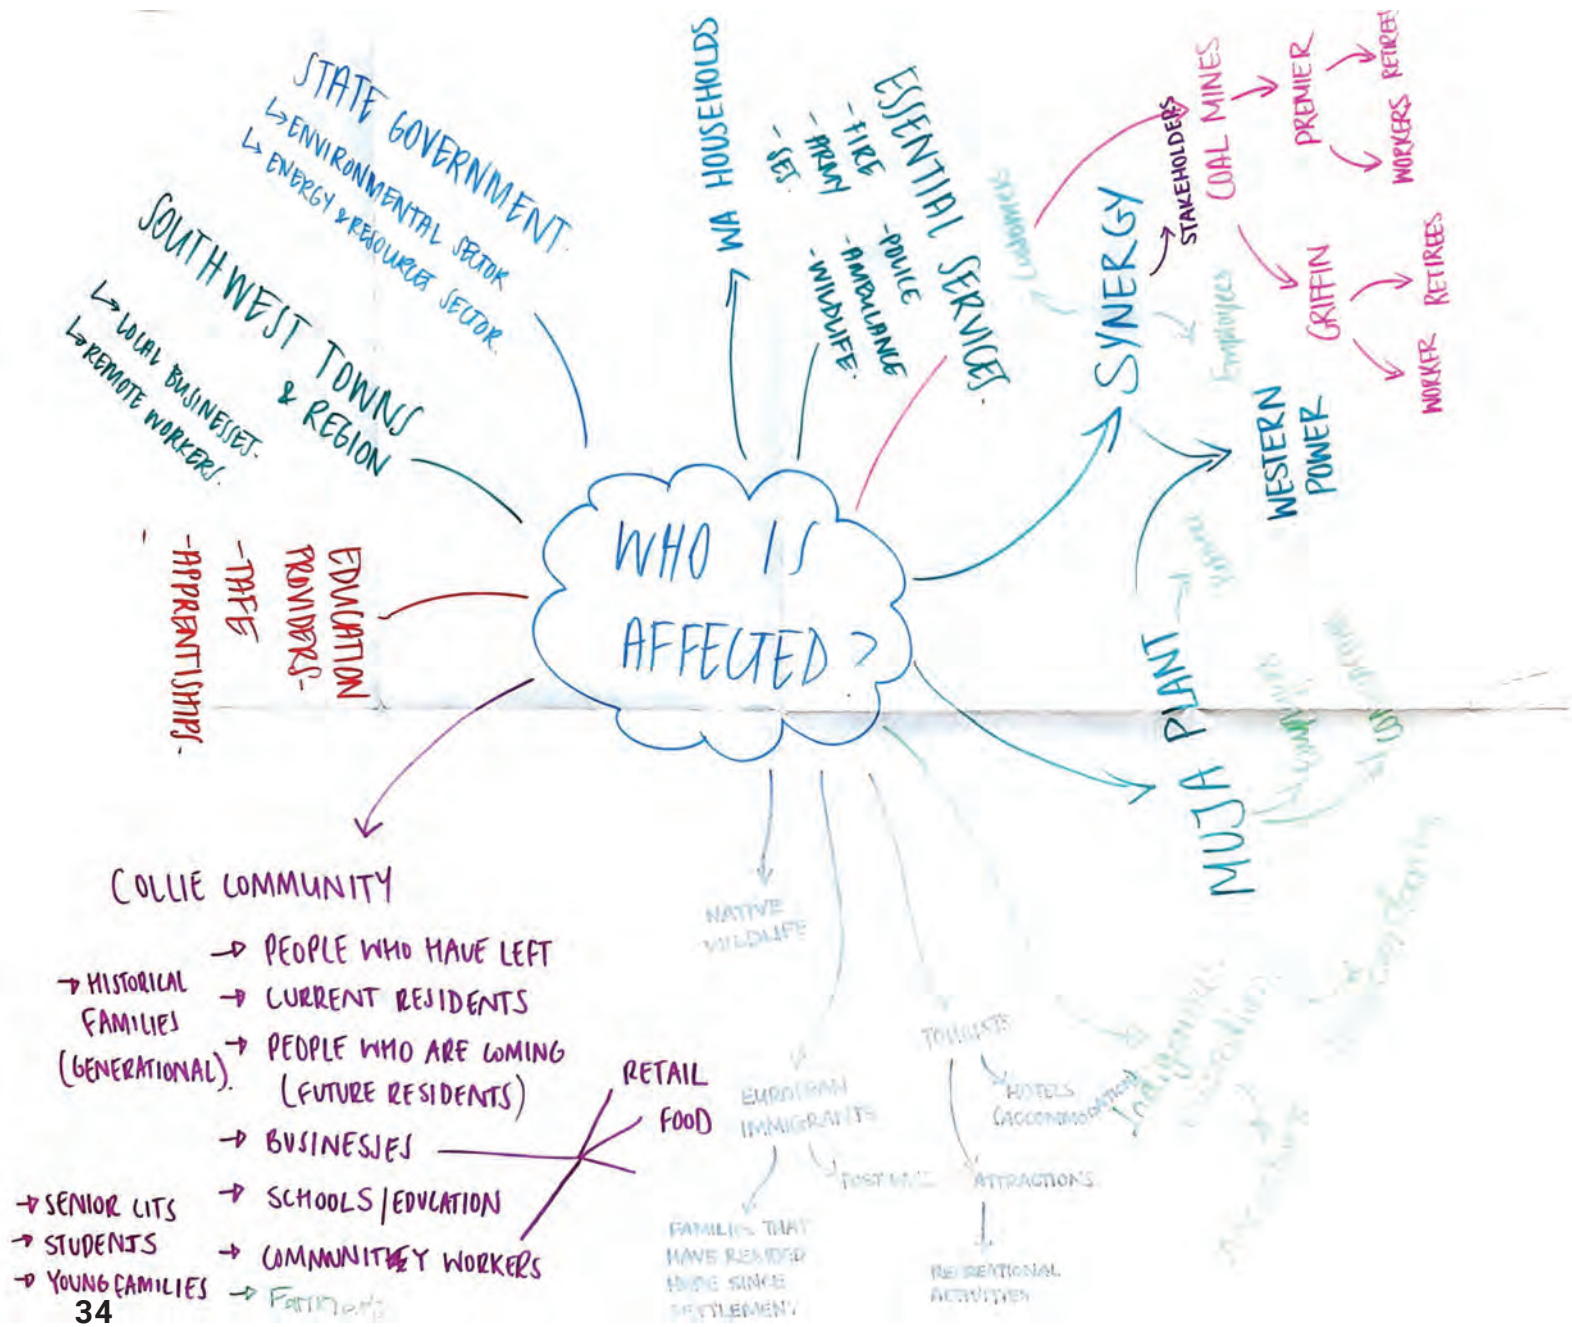 WHO IS
AFFECTED?
STATE GOVERNMENT.
↳ ENVIRONMENTAL SECTOR
↳ ENERGY & RESOURCES SECTOR.
SOUTHWEST TOWNS
& REGION
↳ LOCAL BUSINESSES.
↳ REMOTE WORKERS.
EDUCATION
PROVIDERS-
-TAFE
-APPRENTISHIPS.
WA HOUSEHOLDS
ESSENTIAL SERVICES.
-FIRE
-ARMY
-SES.
-POLICE
-AMBULANCE
-WILDLIFE.
SYNERGY
Customers
Employees
STAKEHOLDERS
COAL MINES
PREMIER
RETIREES
WORKERS
GRIFFIN
RETIREES
WORKER
WESTERN
POWER
MUJA PLANT
COLLIE COMMUNITY
→ PEOPLE WHO HAVE LEFT
→ HISTORICAL
FAMILIES
(GENERATIONAL).
→ CURRENT RESIDENTS
→ PEOPLE WHO ARE COMING
(FUTURE RESIDENTS)
→ BUSINESSES
RETAIL
FOOD
→ SCHOOLS/EDUCATION
→ COMMUNITY WORKERS
→ SENIOR CITS
→ STUDENTS
→ YOUNG FAMILIES
NATIVE
WILDLIFE
EUROPEAN
IMMIGRANTS
POST WAR
FAMILIES THAT
HAVE RESIDED
HERE SINCE
SETTLEMENT
TOURISTS
HOTELS
(ACCOMMODATION)
ATTRACTIONS
RECREATIONAL
ACTIVITIES
Indigenous
34